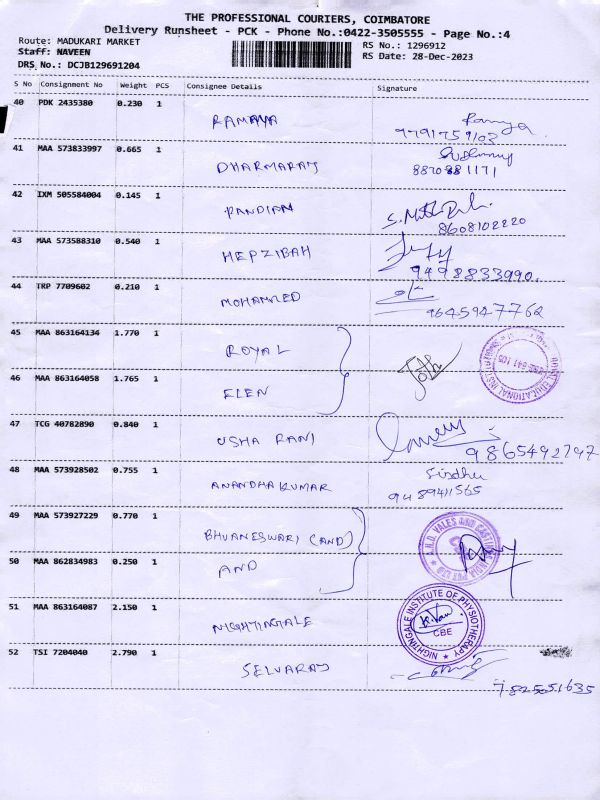 THE PROFESSIONAL COURIERS, COIMBATORE
Delivery Runsheet - PCK - Phone No.:0422-3505555 - Page No.:4
Route: MADUKARI MARKET
Staff: NAVEEN
DRS No.: DCJB129691204
RS No.: 1296912
RS Date: 28-Dec-2023
S No Consignment No Weight PCS Consignee Details Signature
40 PDK 2435380 0.230 1 RAMAYA Ramya
9791759103
41 MAA 573833997 0.665 1 DHARMARAJ
8870881171
42 IXM 505584004 0.145 1 PANDIAN
8608102220
43 MAA 573588310 0.540 1 HEPZIBAH
9498833990.
44 TRP 7709602 0.210 1 MOHAMMED
9645947762
45 MAA 863164134 1.770 1 ROYAL
46 MAA 863164058 1.765 1 ELEN
47 TCG 40782890 0.840 1 USHA RANI
9865492747
48 MAA 573928502 0.755 1 ANANDHAKUMAR Sindhu
9489411565
49 MAA 573927229 0.770 1 BHUANESWARI (AND)
50 MAA 862834983 0.250 1 AND
51 MAA 863164087 2.150 1 NIGHTINGALE
NIGHTINGALE INSTITUTE OF PHYSIOTHERAPY
CBE
52 TSI 7204040 2.790 1 SELVARAJ
7825051635